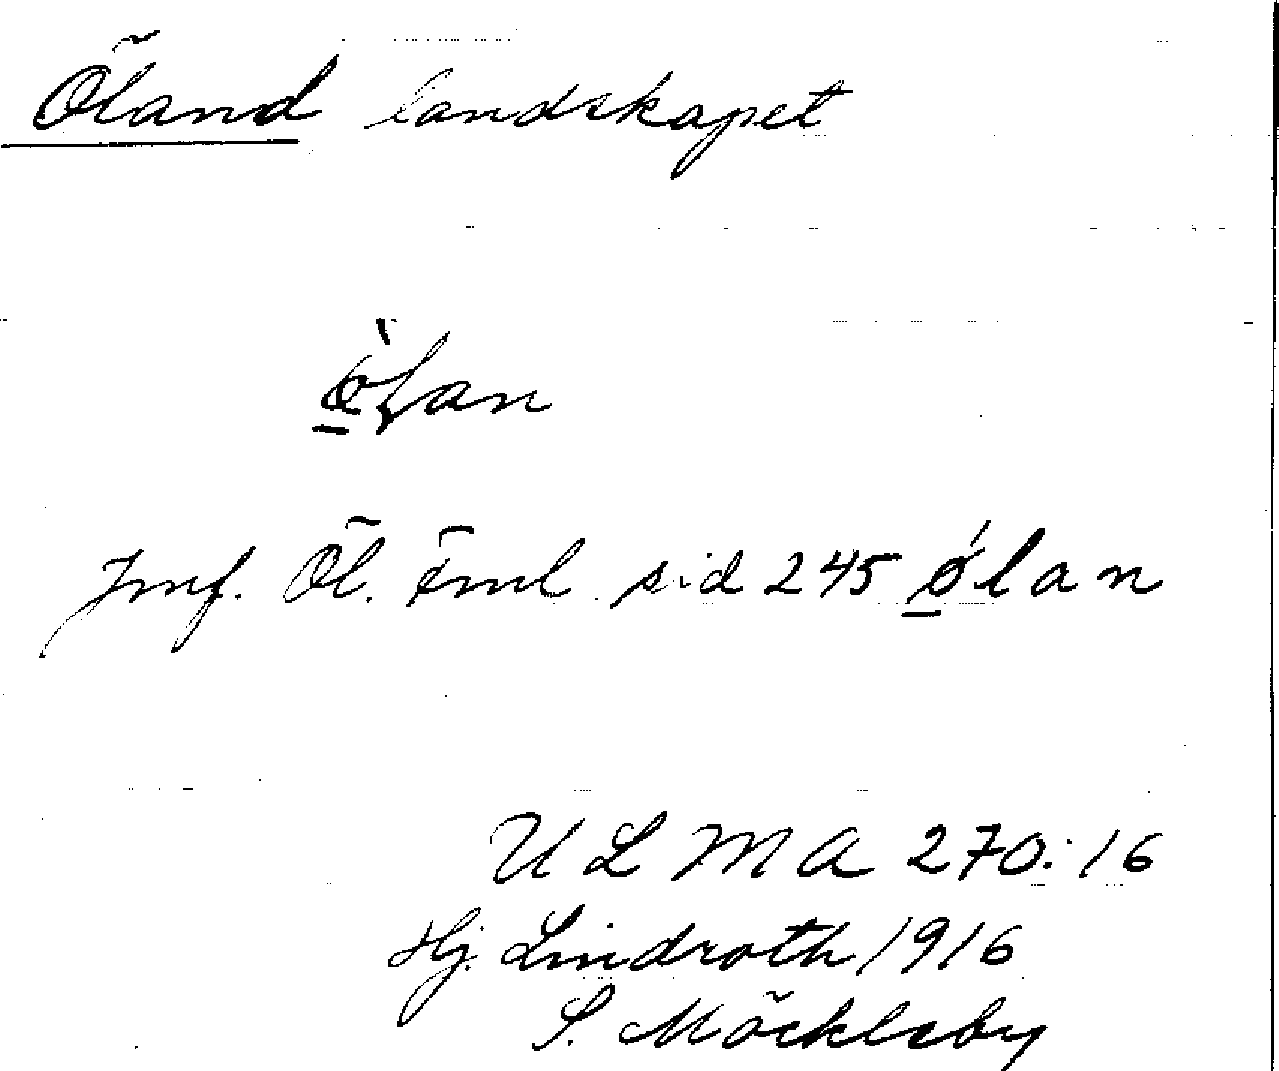 Öland landskapet
ø̀lan
Jmf. Öl. Fml. sid 245 ǿlan
ULMA 270:16
Hj. Lindroth 1916
S. Möckleby